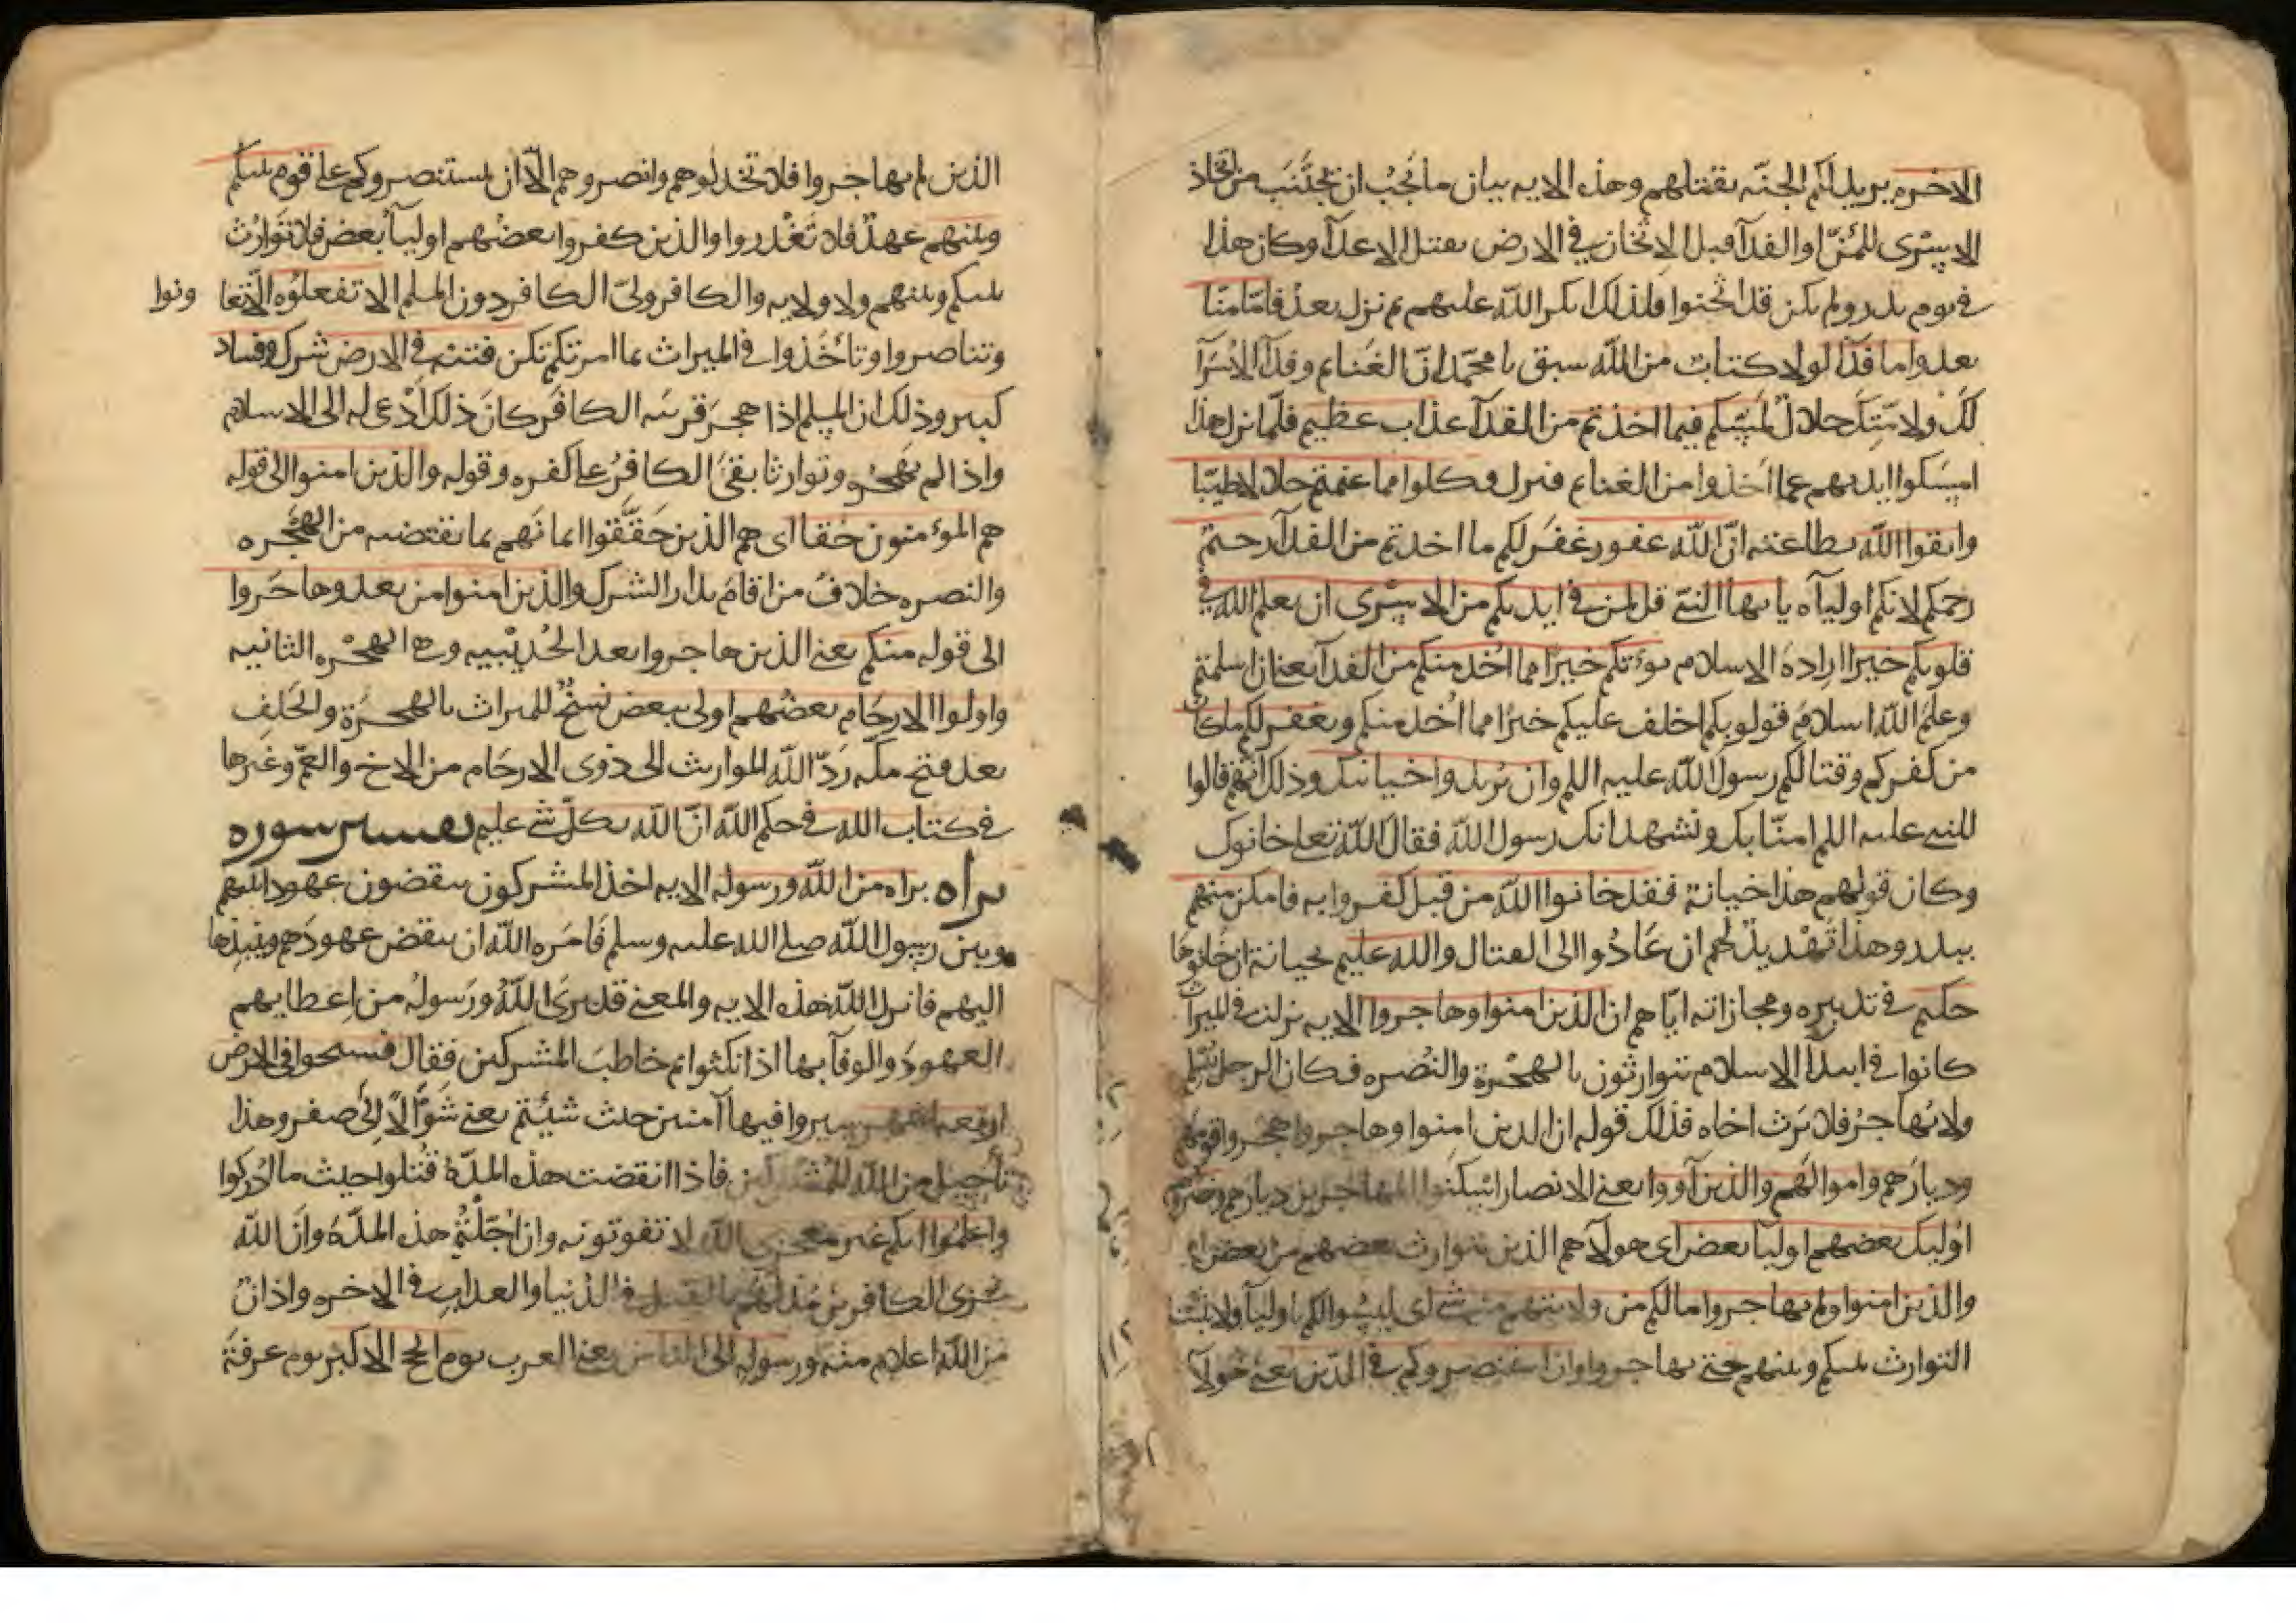 الاخره يريد لكم الجنّه بقتلهم وهذه الايه بيان ما يجب ان يجتنب من اتخاذ
الاسرى للمنّ او الفدآ قبل الاثخان في الارض بقتل الاعدآ وكان هذا
في يوم بدر ولم يكن قد اثخنوا فلذلك انكر الله عليهم ثم نزل بعد فامّا منّا
بعد واما فدآ لولا كتاب من الله سبق يا محمّد انّ الغنايم وفدآ الاسرآ
لك ولامّتك حلال لمسّكم فيما اخذتم من الفدآ عذاب عظيم فلمّا نزل هذا
امسكوا ايديهم عما اخذوا من الغنايم فنزل فكلوا مما غنمتم حلالا طيّبا
واتقوا الله بطاعته انّ الله غفور غفر لكم ما اخذتم من الفدآ رحيم
رحمكم لانكم اولياه يا يها النبي قل لمن في ايديكم من الاسرى ان يعلم الله في
قلوبكم خيرا ارادة الاسلام يوتكم خيرا مما اخذ منكم من الفدآ يعنى ان اسلمتم
وعلم الله اسلام قولوبكم اخلف عليكم خيرا مما اخذ منكم ويغفر لكم ما كان
من كفركم وقتالكم رسول الله عليه اللم وان يريدوا خيانتك وذلك انهم قالوا
للنبى عليه اللم امنّا بك ونشهد انك رسول الله فقال الله تعلى خانوك
وكان قولهم هذا خيانة فقد خانوا الله من قبل كفروا به فامكن منهم
ببدر وهذا تهديد لهم ان عادوا الى القتال والله عليم بخيانة ان خانوها
حكيم في تدبيره ومجازاته ايّاهم ان الذين امنوا وهاجروا الايه نزلت في الميراث
كانوا في ابتدآ الاسلام يتوارثون بالهجرة والنصره فكان الرجل يسلم
ولا يهاجر فلا يرث اخاه فذلك قوله ان الذين امنوا وهاجروا هجروا قومهم
وديارهم واموالهم والذين آووا يعنى الانصار اسكنوا المهاجرين ديارهم ونصروهم
اوليك بعضهم اوليآ بعض اى هولآ هم الذين يتوارث بعضهم من بعض
والذين امنوا ولم يهاجروا ما لكم من ولايتهم من شى اى ليسوا لكم باوليآ ولا يثبت
التوارث بينكم وبينهم حتى يهاجروا وان استنصروكم في الدّين يعنى هولآ
الذين لم يهاجروا فلا تخذلوهم وانصروهم الّا ان يستنصروكم على قوم بينكم
وبينهم عهد فلا تغدروا والذين كفروا بعضهم اوليآ بعض فلا توارث
بينكم وبينهم ولا ولايه والكافر ولىّ الكافر دون المسلم الا تفعلوه الا تتعا ونوا
وتتناصروا وتاخذوا في الميراث بما امرتكم تكن فتنة في الارض شرك وفساد
كبير وذلك ان المسلم اذا هجر قريبه الكافر كان ذلك ادعى له الى الاسلام
واذا لم يهجره وتوارثا بقى الكافر على كفره وقوله والذين امنوا الى قوله
هم المومنون حقا اى هم الذين حققوا ايمانهم بما يقتضيه من الهجره
والنصره خلاف من اقام بدار الشرك والذين امنوا من بعد وهاجروا
الى قوله منكم يعنى الذين هاجروا بعد الحديبيه وهى الهجره الثانيه
واولوا الارحام بعضهم اولى ببعض نسخ للميراث بالهجرة والحلف
بعد فتح مكه ردّ الله المواريث الى ذوى الارحام من الاخ والعمّ وغيرها
في كتاب الله في حكم الله انّ الله بكلّ شى عليم تفسير سوره
براه براه من الله ورسوله الايه اخذ المشركون ينقضون عهودا بينهم
وبين رسول الله صلى الله عليه وسلم فامره الله ان ينقض عهودهم وينبذها
اليهم فانزل الله هذه الايه والمعنى قد برى الله ورسوله من اعطايهم
العهود والوفآ بها اذا نكثوا ثم خاطب المشركين فقال فسيحوا في الارض
اربعه اشهر سيروا فيها آمنين حيث شيتم يعنى شوّالا الى صفر وهذا
تاجيل من الله للمشركين فاذا انقضت هذه المدّة قتلوا حيث ما ادركوا
واعلموا انكم غير معجزى الله لا تفوتونه وان اجّلتم هذه المدّة وان الله
مخزى الكافرين مذلهم بالقتل في الدنيا والعذاب في الاخره واذان
من الله اعلام منه ورسوله الى الناس يعنى العرب يوم الحج الاكبر يوم عرفة